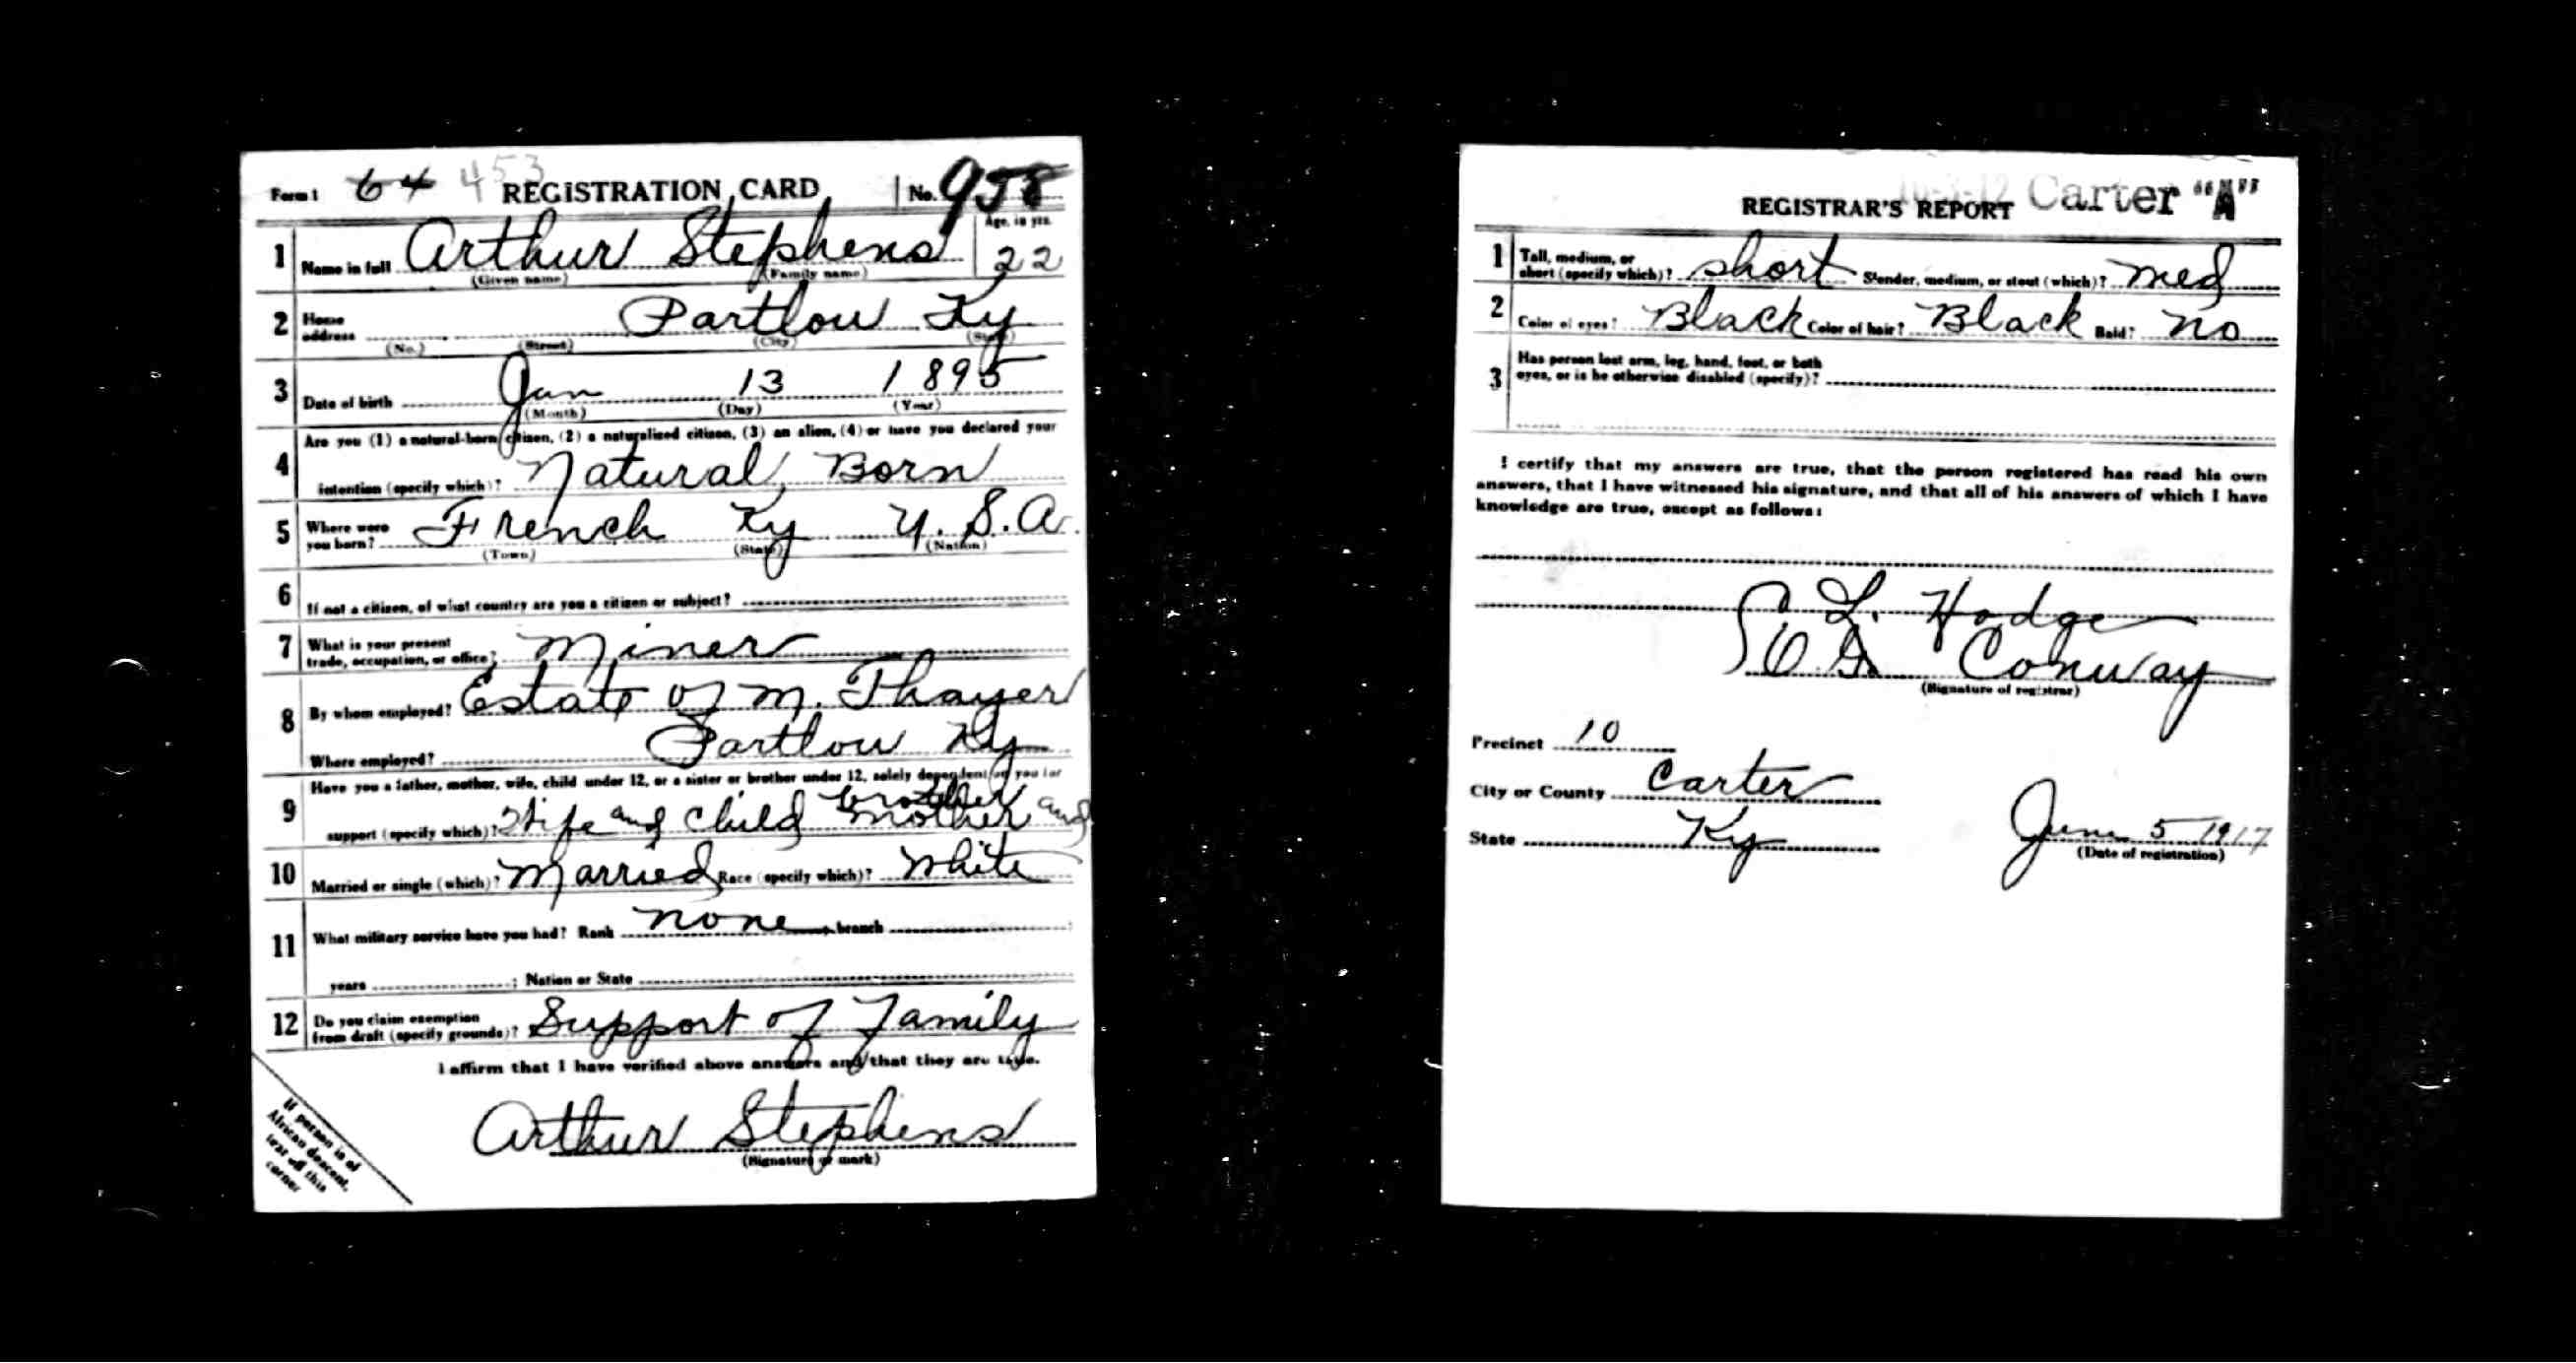 Form 1 64 453 REGISTRATION CARD No. 958
Age, in yrs.
1 Name in full Arthur Stephens 22
(Given name) (Family name)
2 Home address Partlow Ky
(No.) (Street) (City) (State)
3 Date of birth Jan 13 1895
(Month) (Day) (Year)
Are you (1) a natural-born citizen, (2) a naturalized citizen, (3) an alien, (4) or have you declared your
4 intention (specify which)? Natural Born
5 Where were you born? French Ky U.S.A.
(Town) (State) (Nation)
6 If not a citizen, of what country are you a citizen or subject?
7 What is your present trade, occupation, or office? Miner
8 By whom employed? Estate of M. Thayer
Where employed? Partlow Ky
Have you a father, mother, wife, child under 12, or a sister or brother under 12, solely dependent on you for
9 support (specify which)? Wife and child brother and mother
10 Married or single (which)? Married Race (specify which)? White
11 What military service have you had? Rank none branch
years ; Nation or State
12 Do you claim exemption from draft (specify grounds)? Support of Family
I affirm that I have verified above answers and that they are true.
Arthur Stephens
(Signature or mark)
If person is of
African descent,
tear off this
corner
Carter "A"
REGISTRAR'S REPORT
1 Tall, medium, or short (specify which)? short Slender, medium, or stout (which)? med
2 Color of eyes? Black Color of hair? Black Bald? no
3 Has person lost arm, leg, hand, foot, or both
eyes, or is he otherwise disabled (specify)?
I certify that my answers are true, that the person registered has read his own
answers, that I have witnessed his signature, and that all of his answers of which I have
knowledge are true, except as follows:
L. Hodge
Conway
(Signature of registrar)
Precinct 10
City or County Carter
State Ky
June 5 1917
(Date of registration)